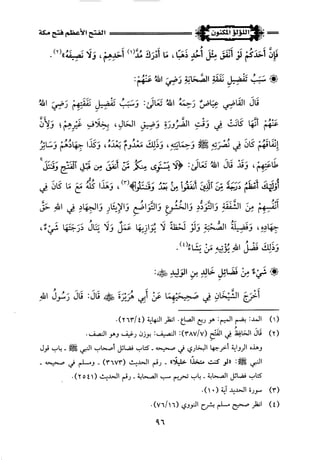 اللؤلؤ المكنون
الفتح الأعظم فتح مكة
فإن أحدكم لو أنفق مثل أحد ذهبا، ما أدرك مد(١) أحدهم، ولا نصيفه»(٢).
سبب تفضيل نفقة الصحابة رضي الله عنهم:
قال القاضي عياض رحمه الله تعالى: وسبب تفضيل نفقتهم رضي الله
عنهم أنها كانت في وقت الضرورة وضيق الحال، بخلاف غيرهم؛ ولأن
إنفاقهم كان في نصرته ﷺ وحمايته، وذلك معدوم بعده، وكذا جهادهم وسائر
طاعتهم، وقد قال الله تعالى: ﴿لا يستوي منكم من أنفق من قبل الفتح وقاتل
أولئك أعظم درجة من الذين أنفقوا من بعد وقاتلوا﴾(٣)، وهذا كله مع ما كان في
أنفسهم من الشفقة والتودد والخشوع والتواضع والإيثار والجهاد في الله حق
جهاده، وفضيلة الصحبة ولو لحظة لا يوازيها عمل ولا ينال درجتها شيء،
وذلك فضل الله يؤتيه من يشاء(٤).
شيء من فضائل خالد بن الوليد ﷺ:
أخرج الشيخان في صحيحيهما عن أبي هريرة ﷺ قال: قال رسول الله
(١) المد: بضم الميم: هو ربع الصاع. انظر النهاية (٢٦٣/٤).
(٢) قال الحافظ في الفتح (٣٨٧/٧): النصيف: بوزن رغيف وهو النصف.
وهذه الرواية أخرجها البخاري في صحيحه - كتاب فضائل أصحاب النبي ﷺ - باب - قول
النبي ﷺ: «لو كنت متخذا خليلا» - رقم الحديث (٣٦٧٣) - ومسلم في صحيحه -
كتاب فضائل الصحابة - باب تحريم سب الصحابة - رقم الحديث (٢٥٤١).
(٣) سورة الحديد آية (١٠).
(٤) انظر صحيح مسلم بشرح النووي (٧٦/١٦).
٩٦